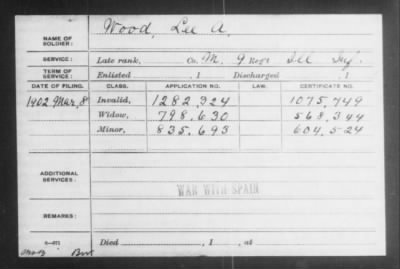 NAME OF SOLDIER: Wood, Lee A.
SERVICE: Late rank, Co. M, 9 Reg't Ill Inf.
TERM OF SERVICE: Enlisted , 1 Discharged , 1
DATE OF FILING. CLASS. APPLICATION NO. LAW. CERTIFICATE NO.
1902 Mar, 8 Invalid, 1282,324 1075,749
Widow, 798,630 568,344
Minor, 835,693 604,524
ADDITIONAL SERVICES.
WAR WITH SPAIN
REMARKS:
Died , 1 , at